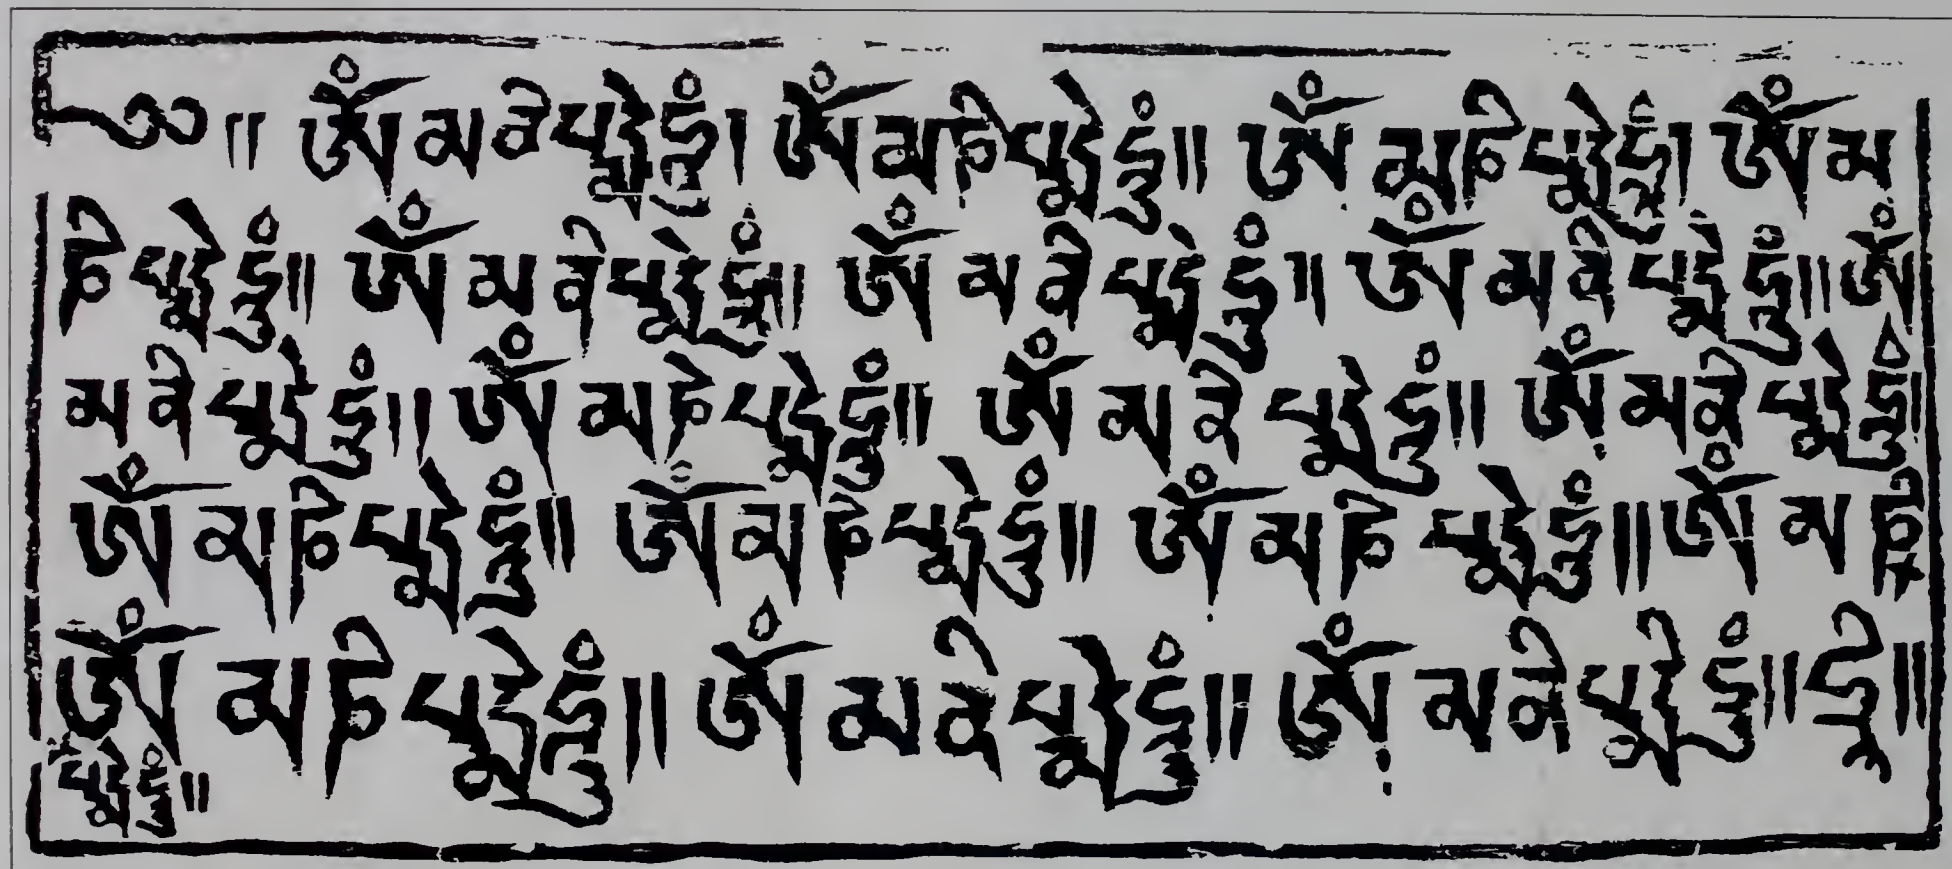 ༄།། ཨོཾ མ ནི པདྨེ ཧཱུཾ། ཨོཾ མ ཎི པདྨེ ཧཱུཾ།། ཨོཾ མ ཎི པདྨེ ཧཱུཾ། ཨོཾ མ
ཎི པདྨེ ཧཱུཾ།། ཨོཾ མ ནི པདྨེ ཧཱུཾ།། ཨོཾ མ ནི པདྨེ ཧཱུཾ།། ཨོཾ མ ནི པདྨེ ཧཱུཾ།། ཨོཾ
མ ནི པདྨེ ཧཱུཾ།། ཨོཾ མ ཎི པདྨེ ཧཱུཾ།། ཨོཾ མ ནི པདྨེ ཧཱུཾ།། ཨོཾ མ ནི པདྨེ ཧཱུཾ།།
ཨོཾ མ ཎི པདྨེ ཧཱུཾ།། ཨོཾ མ ཎི པདྨེ ཧཱུཾ།། ཨོཾ མ ཎི པདྨེ ཧཱུཾ།། ཨོཾ མ ཎི
ཨོཾ མ ཎི པདྨེ ཧཱུཾ།། ཨོཾ མ ནི པདྨེ ཧཱུཾ།། ཨོཾ མ ནི པདྨེ ཧཱུཾ།། ཧྲཱི།།
པདྨེ ཧཱུཾ།།